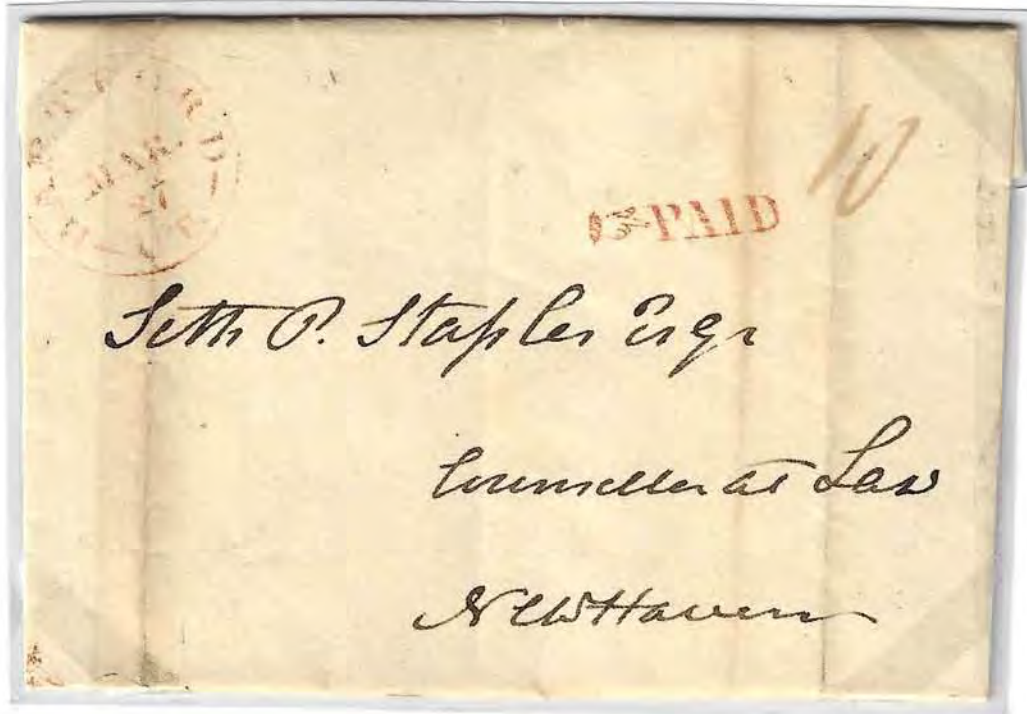 HARTFORD
MAR.
27
PAID
10
Seth P. Staples Esqr
Counsellor at Law
New Haven